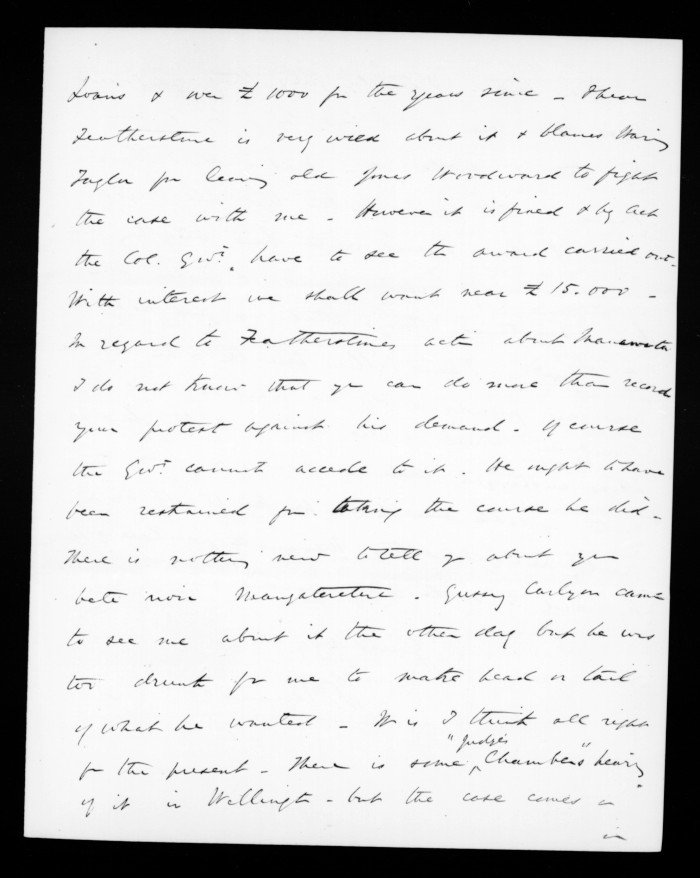 Loans & over £1000 for the years since - I hear
Featherstone is very wild about it & blames Waring
Taylor for leaving old Jones Woodward to fight
the case with me - However it is fixed & by Act
the Col. Govt. have to see the award carried out -
With interest we shall want near £15.000 -
In regard to Featherstone's acts about Manawatu
I do not know that you can do more than record
your protest against his demand - Of course
the Govt. cannot accede to it. He ought to have
been restrained from taking the course he did -
There is nothing new to tell you about your
bete noir Mangateretere. Gussy Carlyon came
to see me about it the other day but he was
too drunk for me to make head or tail
of what he wanted - It is I think all right
for the present - There is some "Judge's Chambers" hearing
of it in Wellington - but the case comes on
in